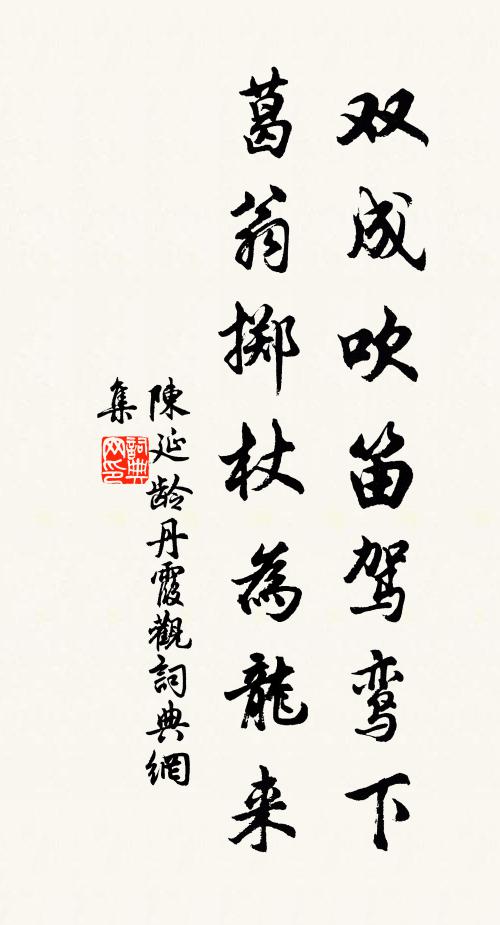 双成吹笛驾鸾下
葛翁掷杖為龍来
陳延龄丹霞觀詞典網
集
詞典网印